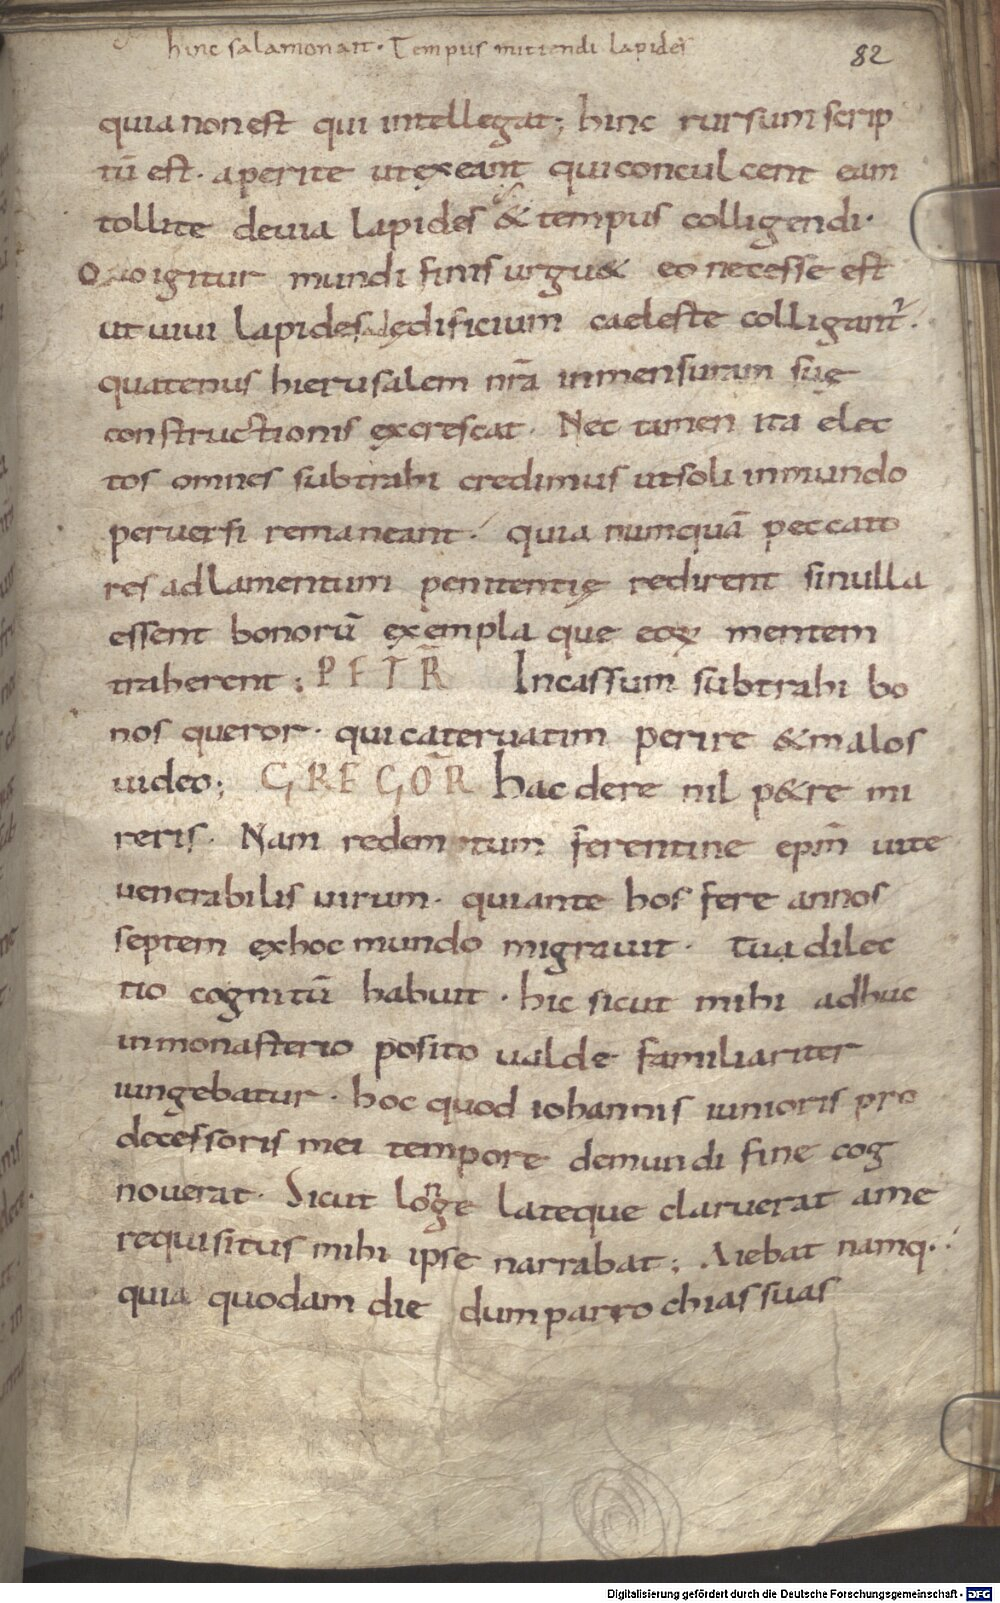 hinc salamon ait. Tempus mittendi lapides
82
quia non est qui intellegat; hinc rursum scrip
tū est. aperite ut exeant qui conculcent eam
tollite deuia lapides & tempus colligendi.
Quo igitur mundi finis urgu& eo necesse est
ut uiui lapides ad ędificium caeleste colligant᷑.
quatenus hierusalem nr̄a in mensuram suę
constructionis excrescat. Nec tamen ita elec
tos omnes subtrahi credimus ut soli in mundo
peruersi remaneant. quia numquā peccato
res ad lamentum penitentię redirent si nulla
essent bonorū exempla que eoꝝ mentem
traherent; PETR̄ Incassum subtrahi bo
nos queror. qui cateruatim perire & malos
uideo; GREGOR̄ hac de re nil p&re mi
reris. Nam redemptum ferentine epm̄ uite
uenerabilis uirum. qui ante hos fere annos
septem ex hoc mundo migrauit. tua dilec
tio cognitū habuit. hic sicut mihi adhuc
in monasterio posito ualde familiariter
iungebatur. hoc quod iohannis iunioris pro
decessoris mei tempore de mundi fine cog
nouerat. Sicut longe lateque claruerat a me
requisitus mihi ipse narrabat; Aiebat namq.
quia quodam die dum parrochias suas
Digitalisierung gefördert durch die Deutsche Forschungsgemeinschaft - DFG